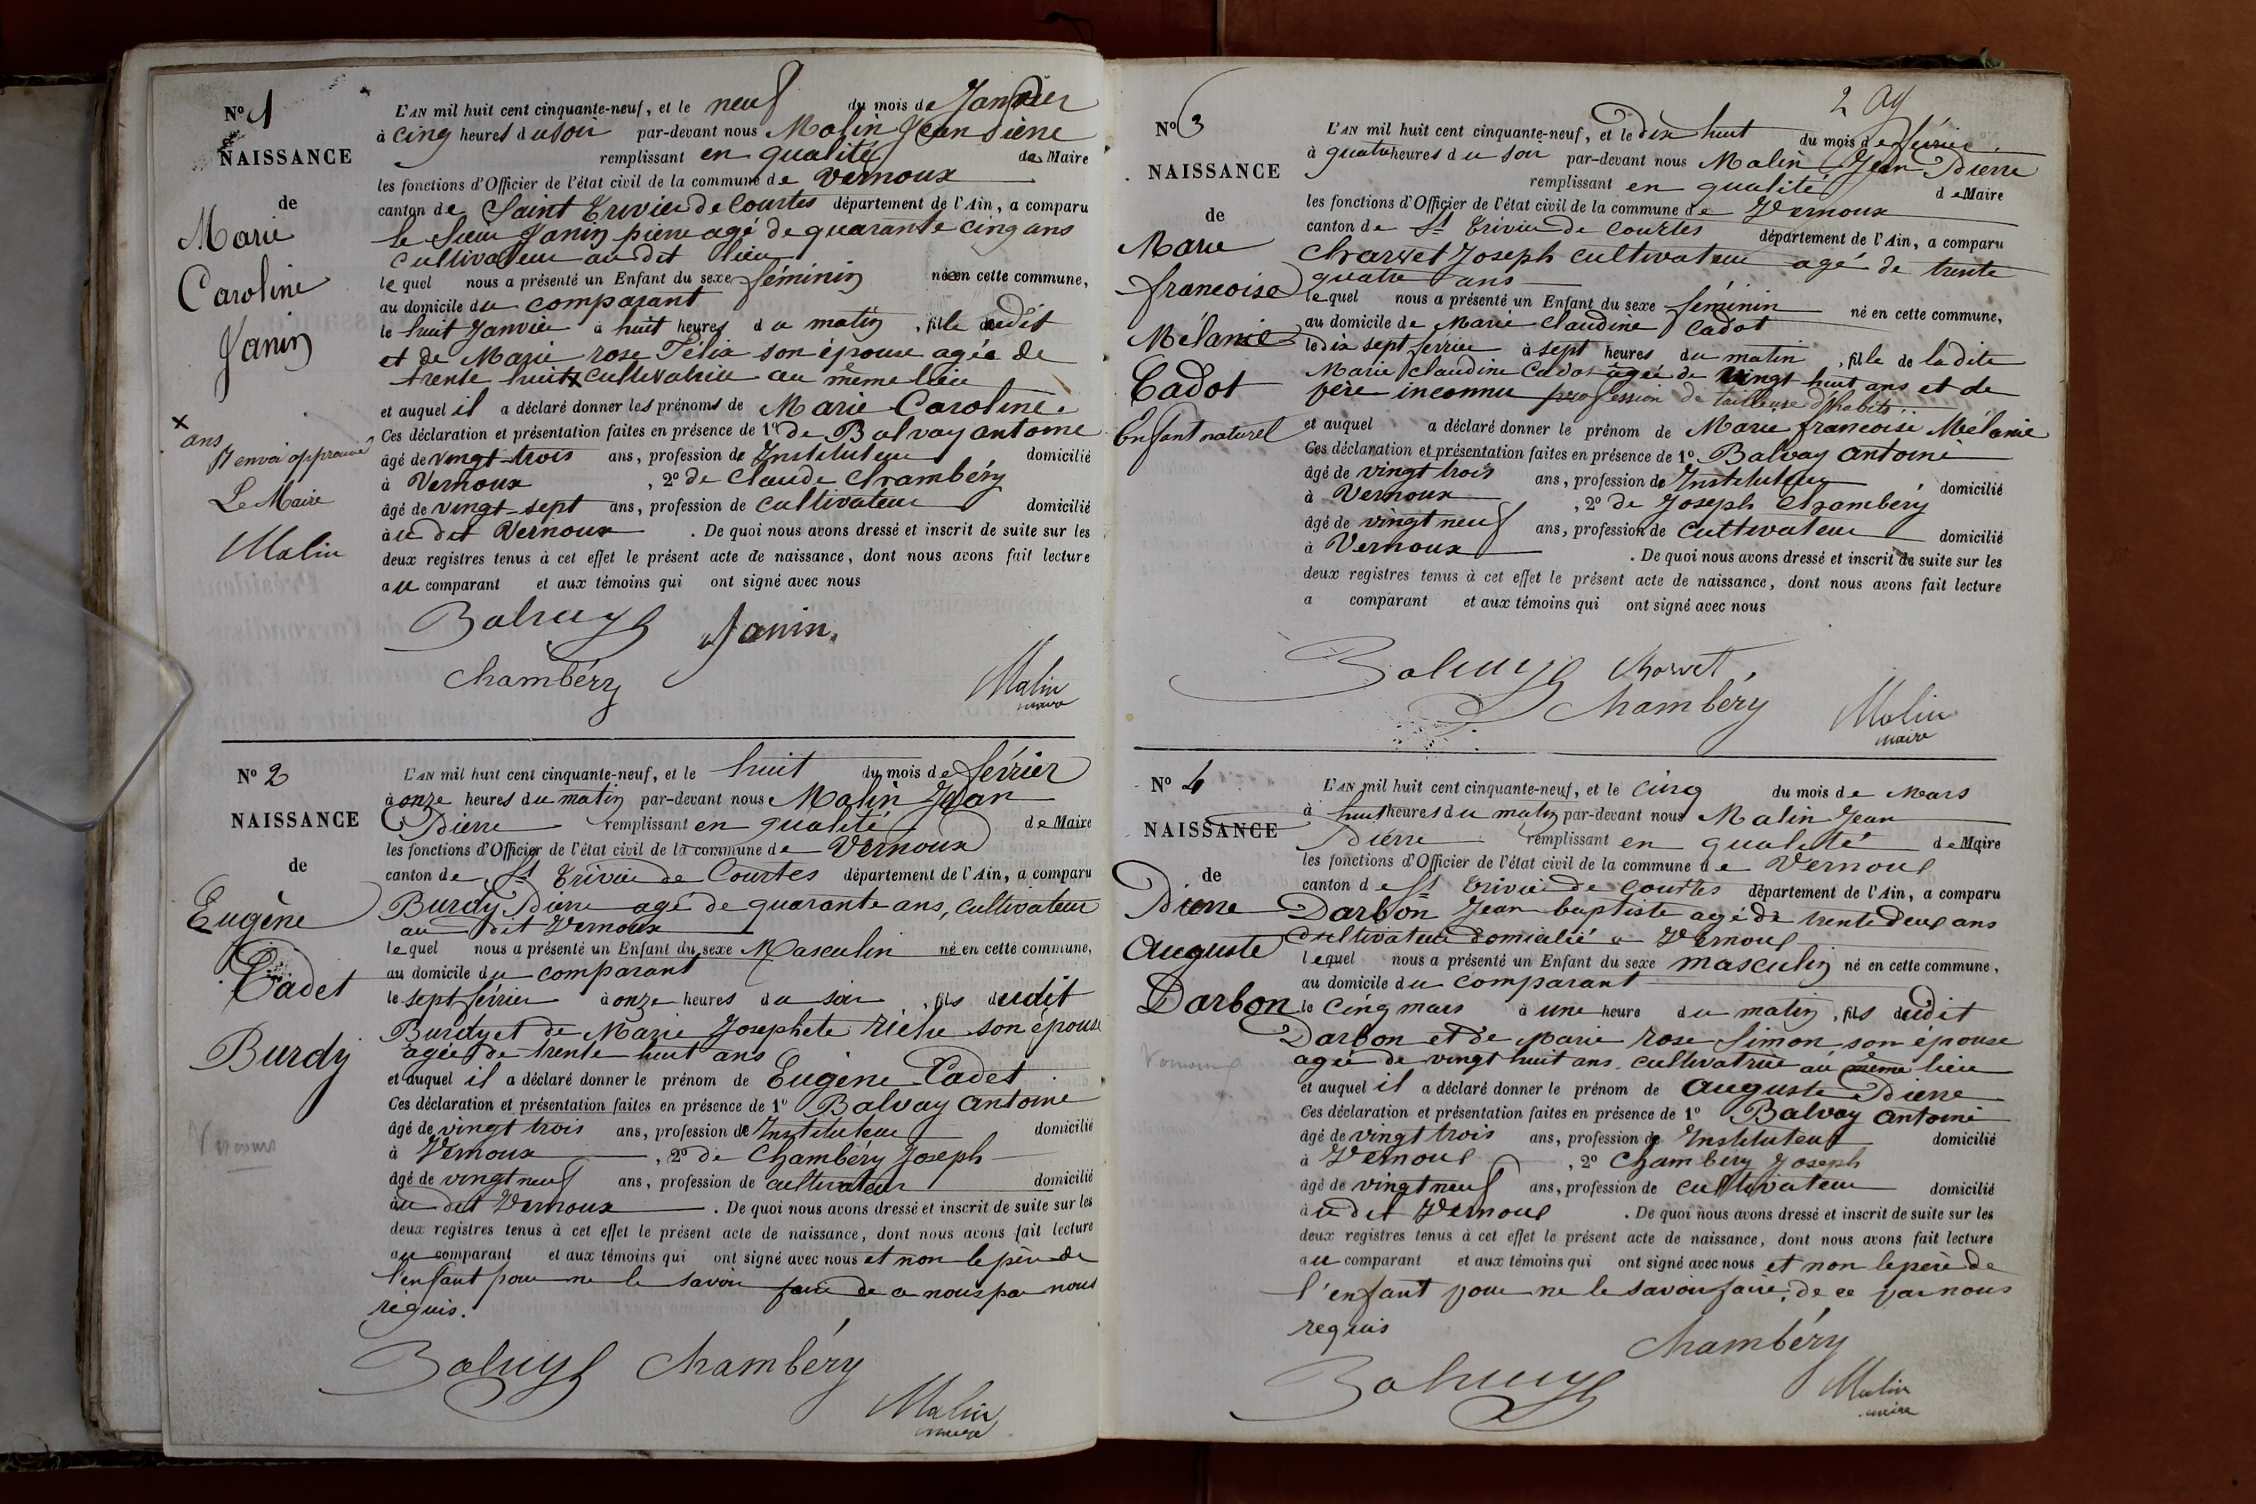 N° 1
NAISSANCE
de
Marie
Caroline
Janin
x
ans
renvoi approuvé
Le Maire
Malin
L'AN mil huit cent cinquante-neuf, et le neuf du mois de Janvier
à cinq heures du soir par-devant nous Malin Jean Pierre
remplissant en qualité de Maire
les fonctions d'Officier de l'état civil de la commune de Vernoux
canton de Saint Trivier de Courtes département de l'Ain, a comparu
le Sieur Janin pierre agé de quarante cinq ans
Cultivateur au dit lieu
lequel nous a présenté un Enfant du sexe féminin née en cette commune,
au domicile du comparant
le huit Janvier à huit heures du matin, fille dudit
et de Marie rose Félix son épouse agée de
trente huit x cultivatrice au même lieu
et auquel il a déclaré donner les prénoms de Marie Caroline.
Ces déclaration et présentation faites en présence de 1° de Balvay antoine
âgé de vingt-trois ans, profession de Instituteur domicilié
à Vernoux, 2° de Claude Chambéry
âgé de vingt-sept ans, profession de cultivateur domicilié
au dit Vernoux. De quoi nous avons dressé et inscrit de suite sur les
deux registres tenus à cet effet le présent acte de naissance, dont nous avons fait lecture
au comparant et aux témoins qui ont signé avec nous
Balvay Janin
Chambéry Malin
maire
N° 2
NAISSANCE
de
Eugène
Cadet
Burdy
L'AN mil huit cent cinquante-neuf, et le huit du mois de février
à onze heures du matin par-devant nous Malin Jean
Pierre remplissant en qualité de Maire
les fonctions d'Officier de l'état civil de la commune de Vernoux
canton de St Trivier de Courtes département de l'Ain, a comparu
Burdy Pierre agé de quarante ans, cultivateur
au dit Vernoux
lequel nous a présenté un Enfant du sexe Masculin né en cette commune,
au domicile du comparant
le sept février à onze heures du soir, fils dudit
Burdy et de Marie Josephete riche son épouse
agée de trente huit ans
et auquel il a déclaré donner le prénom de Eugène Cadet.
Ces déclaration et présentation faites en présence de 1° Balvay antoine
âgé de vingt trois ans, profession de Instituteur domicilié
à Vernoux, 2° de Chambéry Joseph
âgé de vingt neuf ans, profession de cultivateur domicilié
au dit Vernoux. De quoi nous avons dressé et inscrit de suite sur les
deux registres tenus à cet effet le présent acte de naissance, dont nous avons fait lecture
au comparant et aux témoins qui ont signé avec nous et non le père de
l'enfant pour ne le savoir faire de ce nous par nous
requis.
Balvay Chambéry
Malin
maire
2
N° 3
NAISSANCE
de
Marie
francoise
Mélanie
Cadot
Enfant naturel
L'AN mil huit cent cinquante-neuf, et le dix huit du mois de février
à quatre heures du soir par-devant nous Malin Jean Pierre
remplissant en qualité de Maire
les fonctions d'Officier de l'état civil de la commune de Vernoux
canton de St Trivier de Courtes département de l'Ain, a comparu
Charvet Joseph cultivateur agé de trente
quatre ans
lequel nous a présenté un Enfant du sexe féminin né en cette commune,
au domicile de Marie Claudine Cadot
le dix sept fevrier à sept heures du matin, fille de la dite
Marie Claudine Cadot agée de vingt huit ans et de
père inconnu profession de tailleuse d'habits
et auquel a déclaré donner le prénom de Marie francoise Mélanie
Ces déclaration et présentation faites en présence de 1° Balvay antoine
âgé de vingt trois ans, profession de Instituteur domicilié
à Vernoux, 2° de Joseph Chambéry
âgé de vingt neuf ans, profession de cultivateur domicilié
à Vernoux. De quoi nous avons dressé et inscrit de suite sur les
deux registres tenus à cet effet le présent acte de naissance, dont nous avons fait lecture
a comparant et aux témoins qui ont signé avec nous
Balvay Charvet
Chambéry Malin
maire
N° 4
NAISSANCE
de
Pierre
auguste
Darbon
L'AN mil huit cent cinquante-neuf, et le cinq du mois de Mars
à huit heures du matin par-devant nous Malin Jean
Pierre remplissant en qualité de Maire
les fonctions d'Officier de l'état civil de la commune de Vernoux
canton de St Trivier de Courtes département de l'Ain, a comparu
Darbon Jean baptiste agé de trente deux ans
cultivateur domicilié a Vernoux
lequel nous a présenté un Enfant du sexe masculin né en cette commune,
au domicile du comparant
le cinq mars à une heure du matin, fils dudit
Darbon et de Marie rose Simon son épouse
agée de vingt huit ans cultivatrice au même lieu
et auquel il a déclaré donner le prénom de auguste Pierre
Ces déclaration et présentation faites en présence de 1° Balvay antoine
âgé de vingt trois ans, profession de Instituteur domicilié
à Vernoux, 2° Chambéry Joseph
âgé de vingt neuf ans, profession de cultivateur domicilié
au dit Vernoux. De quoi nous avons dressé et inscrit de suite sur les
deux registres tenus à cet effet le présent acte de naissance, dont nous avons fait lecture
au comparant et aux témoins qui ont signé avec nous et non le père de
l'enfant pour ne le savoir faire, de ce par nous
requis
Chambéry
Balvay Malin
maire